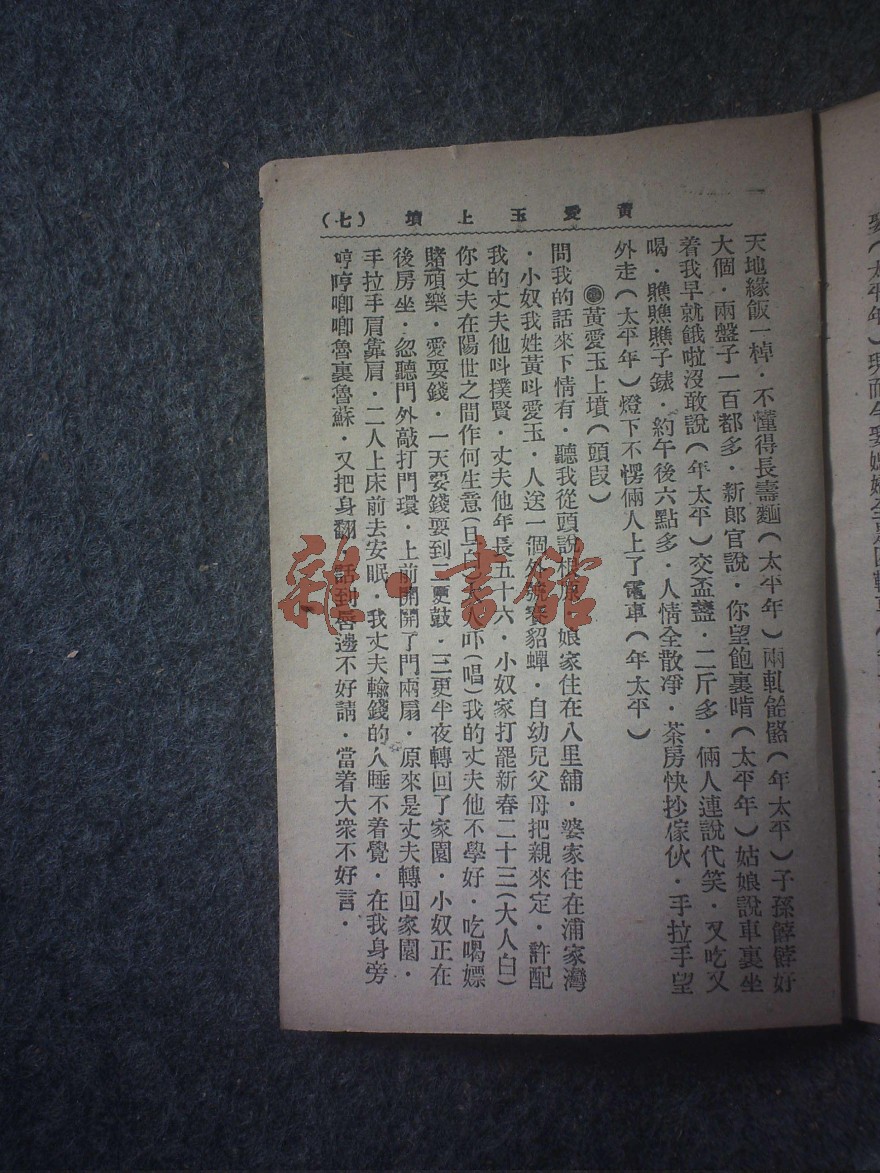 黃愛玉上墳（七）
天地緣飯一棹．不懂得長壽麵（太平年）兩軋餄餎（年太平）子孫餑餑好
大個．兩盤子一百都多．新郎官說．你望飽裏啃（太平年）姑娘說車裏坐
着我早就餓啦沒敢說（年太平）交盃盞．二斤多．倆人連說代笑．又吃又
喝．瞧瞧瞧子錶．約午後六點多．人情全散凈．茶房快抄傢伙．手拉手望
外走（太平年）燈下不愣倆人上了電車（年太平）
黃愛玉上墳（頭段）
問我的話來下情有．聽我從頭說根原．娘家住在八里舖．婆家住在浦家灣
．小奴我姓黃呌愛玉．人送一個外號賽貂蟬．自幼兒父母把親來定．許配
我的丈夫他呌撲賢．丈夫他年長五十六．小奴家打罷新春二十三（大人白）
你丈夫在陽世之間作何生意（旦白）大人吓（唱）我的丈夫他不學好．吃喝嫖
賭頑樂．愛耍錢．一天耍錢耍到二更鼓．三更半夜轉回了家園．小奴正在
後房坐．忽聽門外敲打門環．上前開開了門兩扇．原來是丈夫轉回家園．
手拉手肩靠肩．二人上床前去安眠．我丈夫輸錢的人睡不着覺．在我身旁
哼哼唧唧魯裏魯蘇．又把身翻．話到唇邊不好請．當着大衆不好言．
雜·書館